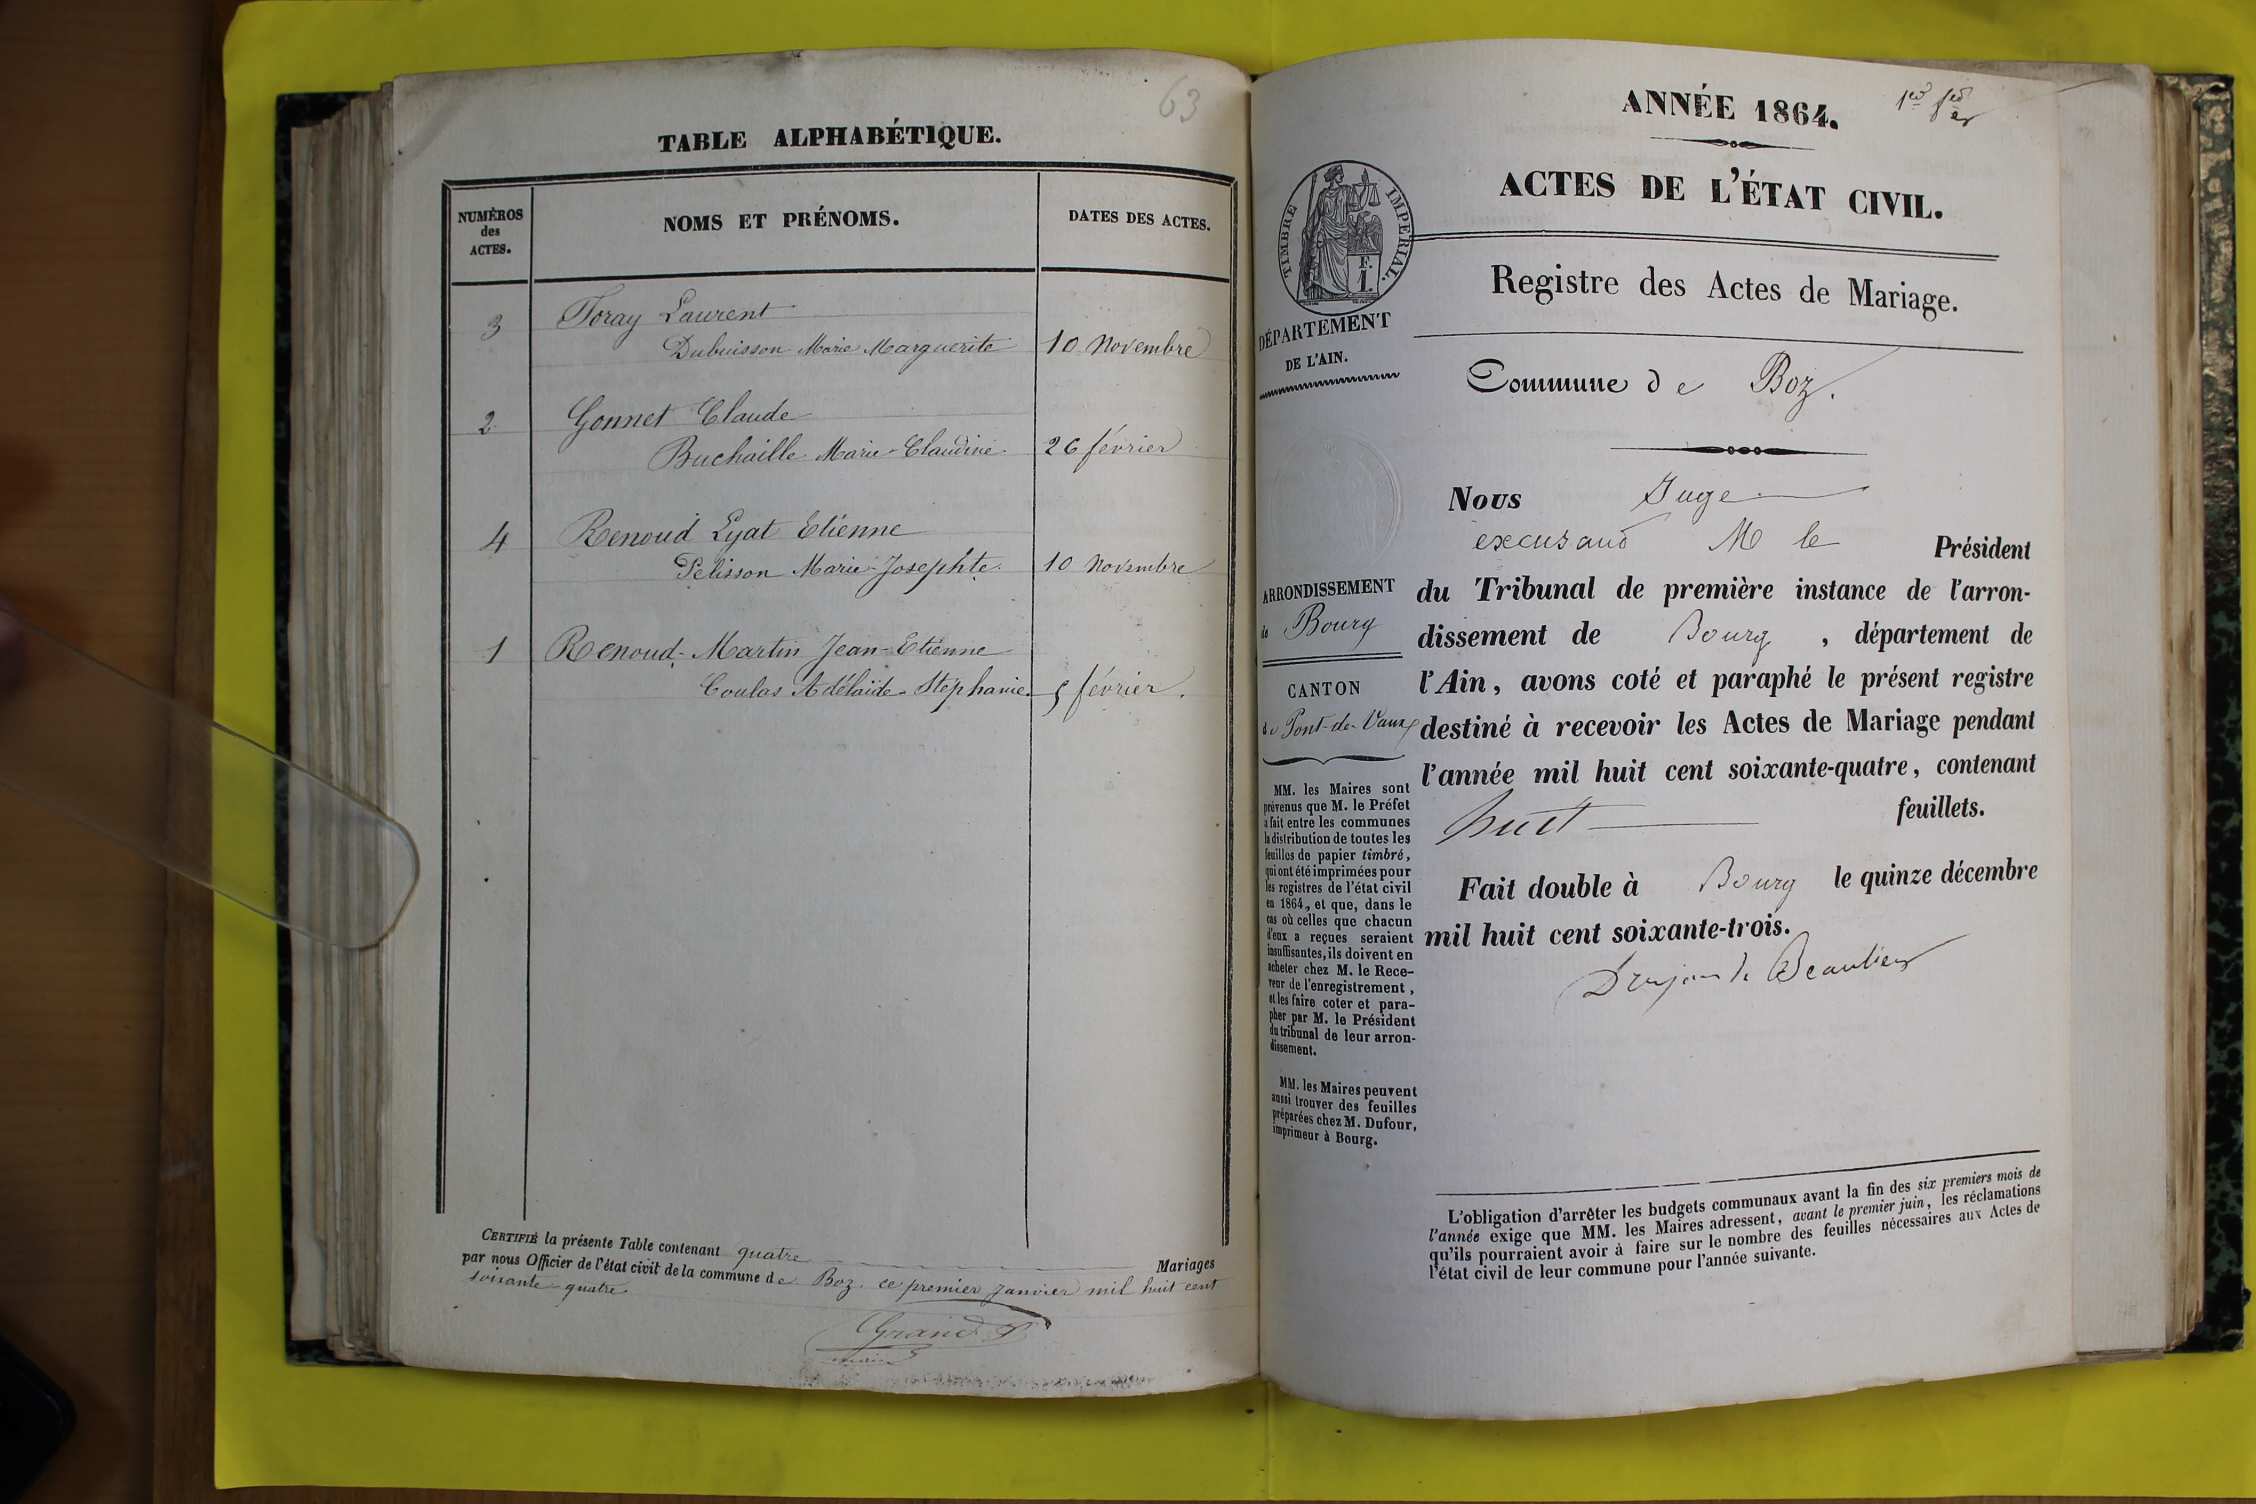 63
TABLE ALPHABÉTIQUE.
NUMÉROS
des
ACTES.
NOMS ET PRÉNOMS.
DATES DES ACTES.
3
Foray Laurent
Dubuisson Marie Marguerite
10 Novembre
2
Gonnet Claude
Buchaille Marie-Claudine
26 février
4
Renoud Lyat Etienne
Pelisson Marie-Josephte
10 Novembre
1
Renoud-Martin Jean-Etienne
Coulas Adélaïde Stéphanie
5 février.
CERTIFIÉ la présente Table contenant quatre Mariages
par nous Officier de l'état civil de la commune de Boz, ce premier janvier mil huit cent
soixante-quatre
Grand
maire
ANNÉE 1864.
1er
ACTES DE L'ÉTAT CIVIL.
TIMBRE IMPÉRIAL.
F.
1.
Registre des Actes de Mariage.
DÉPARTEMENT
DE L'AIN.
Commune de Boz.
Nous Juge
excusant M le Président
du Tribunal de première instance de l'arron-
dissement de Bourg, département de
l'Ain, avons coté et paraphé le présent registre
destiné à recevoir les Actes de Mariage pendant
l'année mil huit cent soixante-quatre, contenant
huit feuillets.
Fait double à Bourg le quinze décembre
mil huit cent soixante-trois.
de Beaulieu
ARRONDISSEMENT
de Bourg
CANTON
de Pont-de-Vaux
MM. les Maires sont
prévenus que M. le Préfet
a fait entre les communes
la distribution de toutes les
feuilles de papier timbré,
qui ont été imprimées pour
les registres de l'état civil
en 1864, et que, dans le
cas où celles que chacun
d'eux a reçues seraient
insuffisantes, ils doivent en
acheter chez M. le Rece-
veur de l'enregistrement,
et les faire coter et para-
pher par M. le Président
du tribunal de leur arron-
dissement.
MM. les Maires peuvent
aussi trouver des feuilles
préparées chez M. Dufour,
imprimeur à Bourg.
L'obligation d'arrêter les budgets communaux avant la fin des six premiers mois de
l'année exige que MM. les Maires adressent, avant le premier juin, les réclamations
qu'ils pourraient avoir à faire sur le nombre des feuilles nécessaires aux Actes de
l'état civil de leur commune pour l'année suivante.